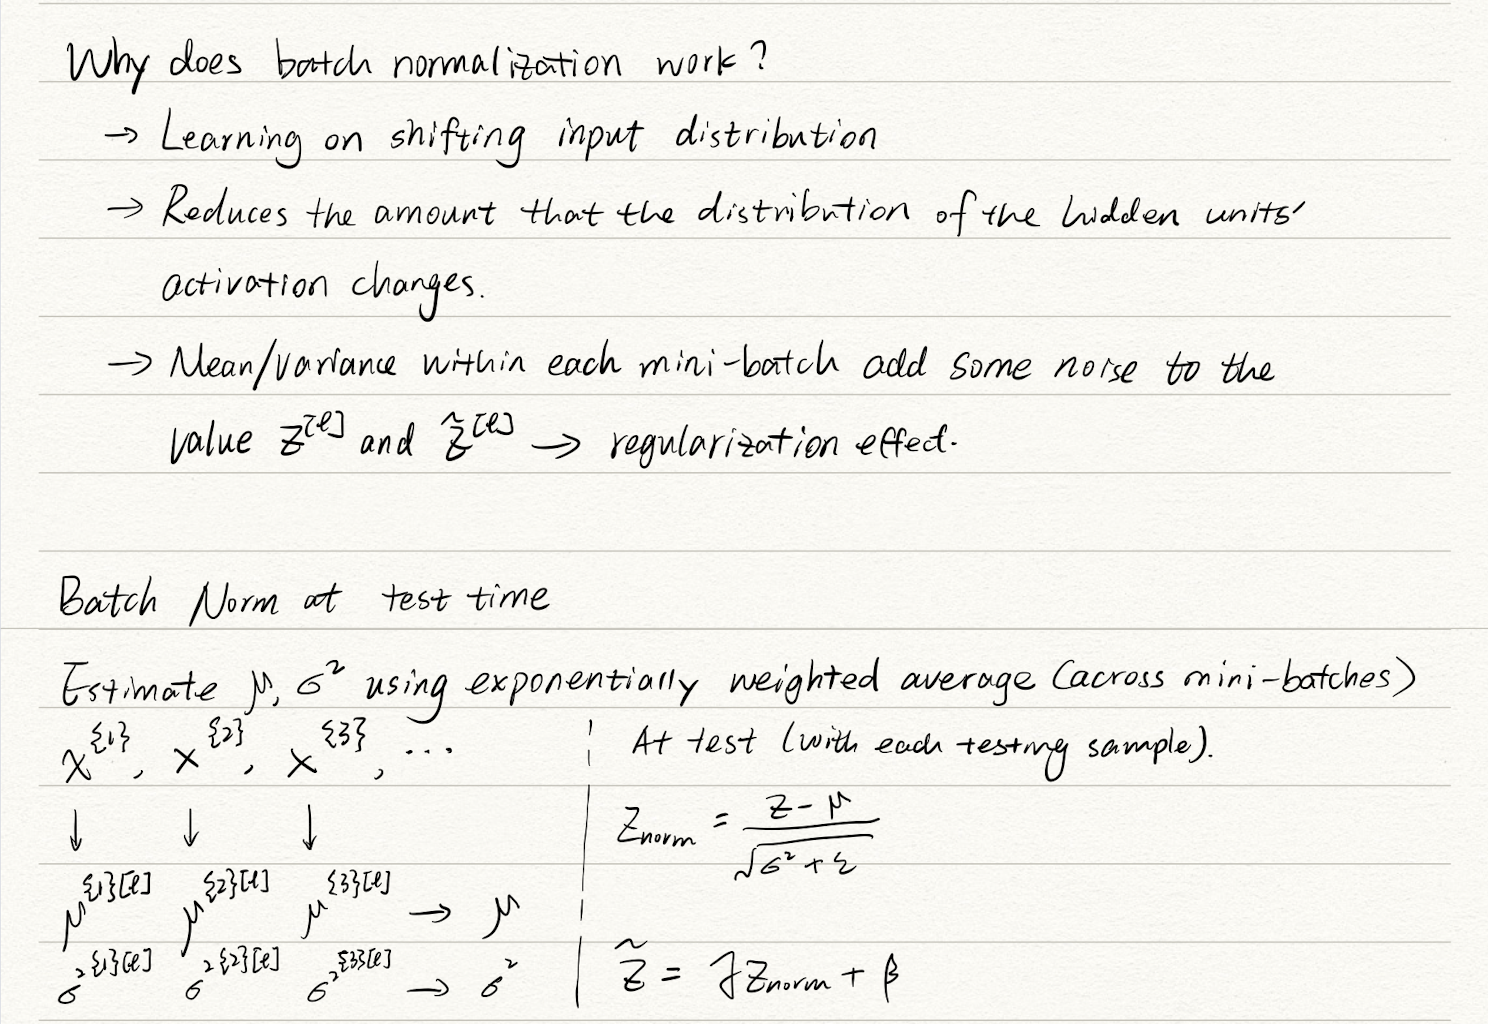 Why does batch normalization work?
→ Learning on shifting input distribution
→ Reduces the amount that the distribution of the hidden units'
activation changes.
→ Mean/variance within each mini-batch add some noise to the
value z^[l] and z̃^[l] → regularization effect.
Batch Norm at test time
Estimate μ, σ² using exponentially weighted average (across mini-batches)
x^{1}, x^{2}, x^{3}, ...
↓ ↓ ↓
μ^{1}[l] μ^{2}[l] μ^{3}[l] → μ
σ²^{1}[l] σ²^{2}[l] σ²^{3}[l] → σ²
At test (with each testing sample).
Z_norm = (z - μ) / √(σ² + ε)
z̃ = γ z_norm + β